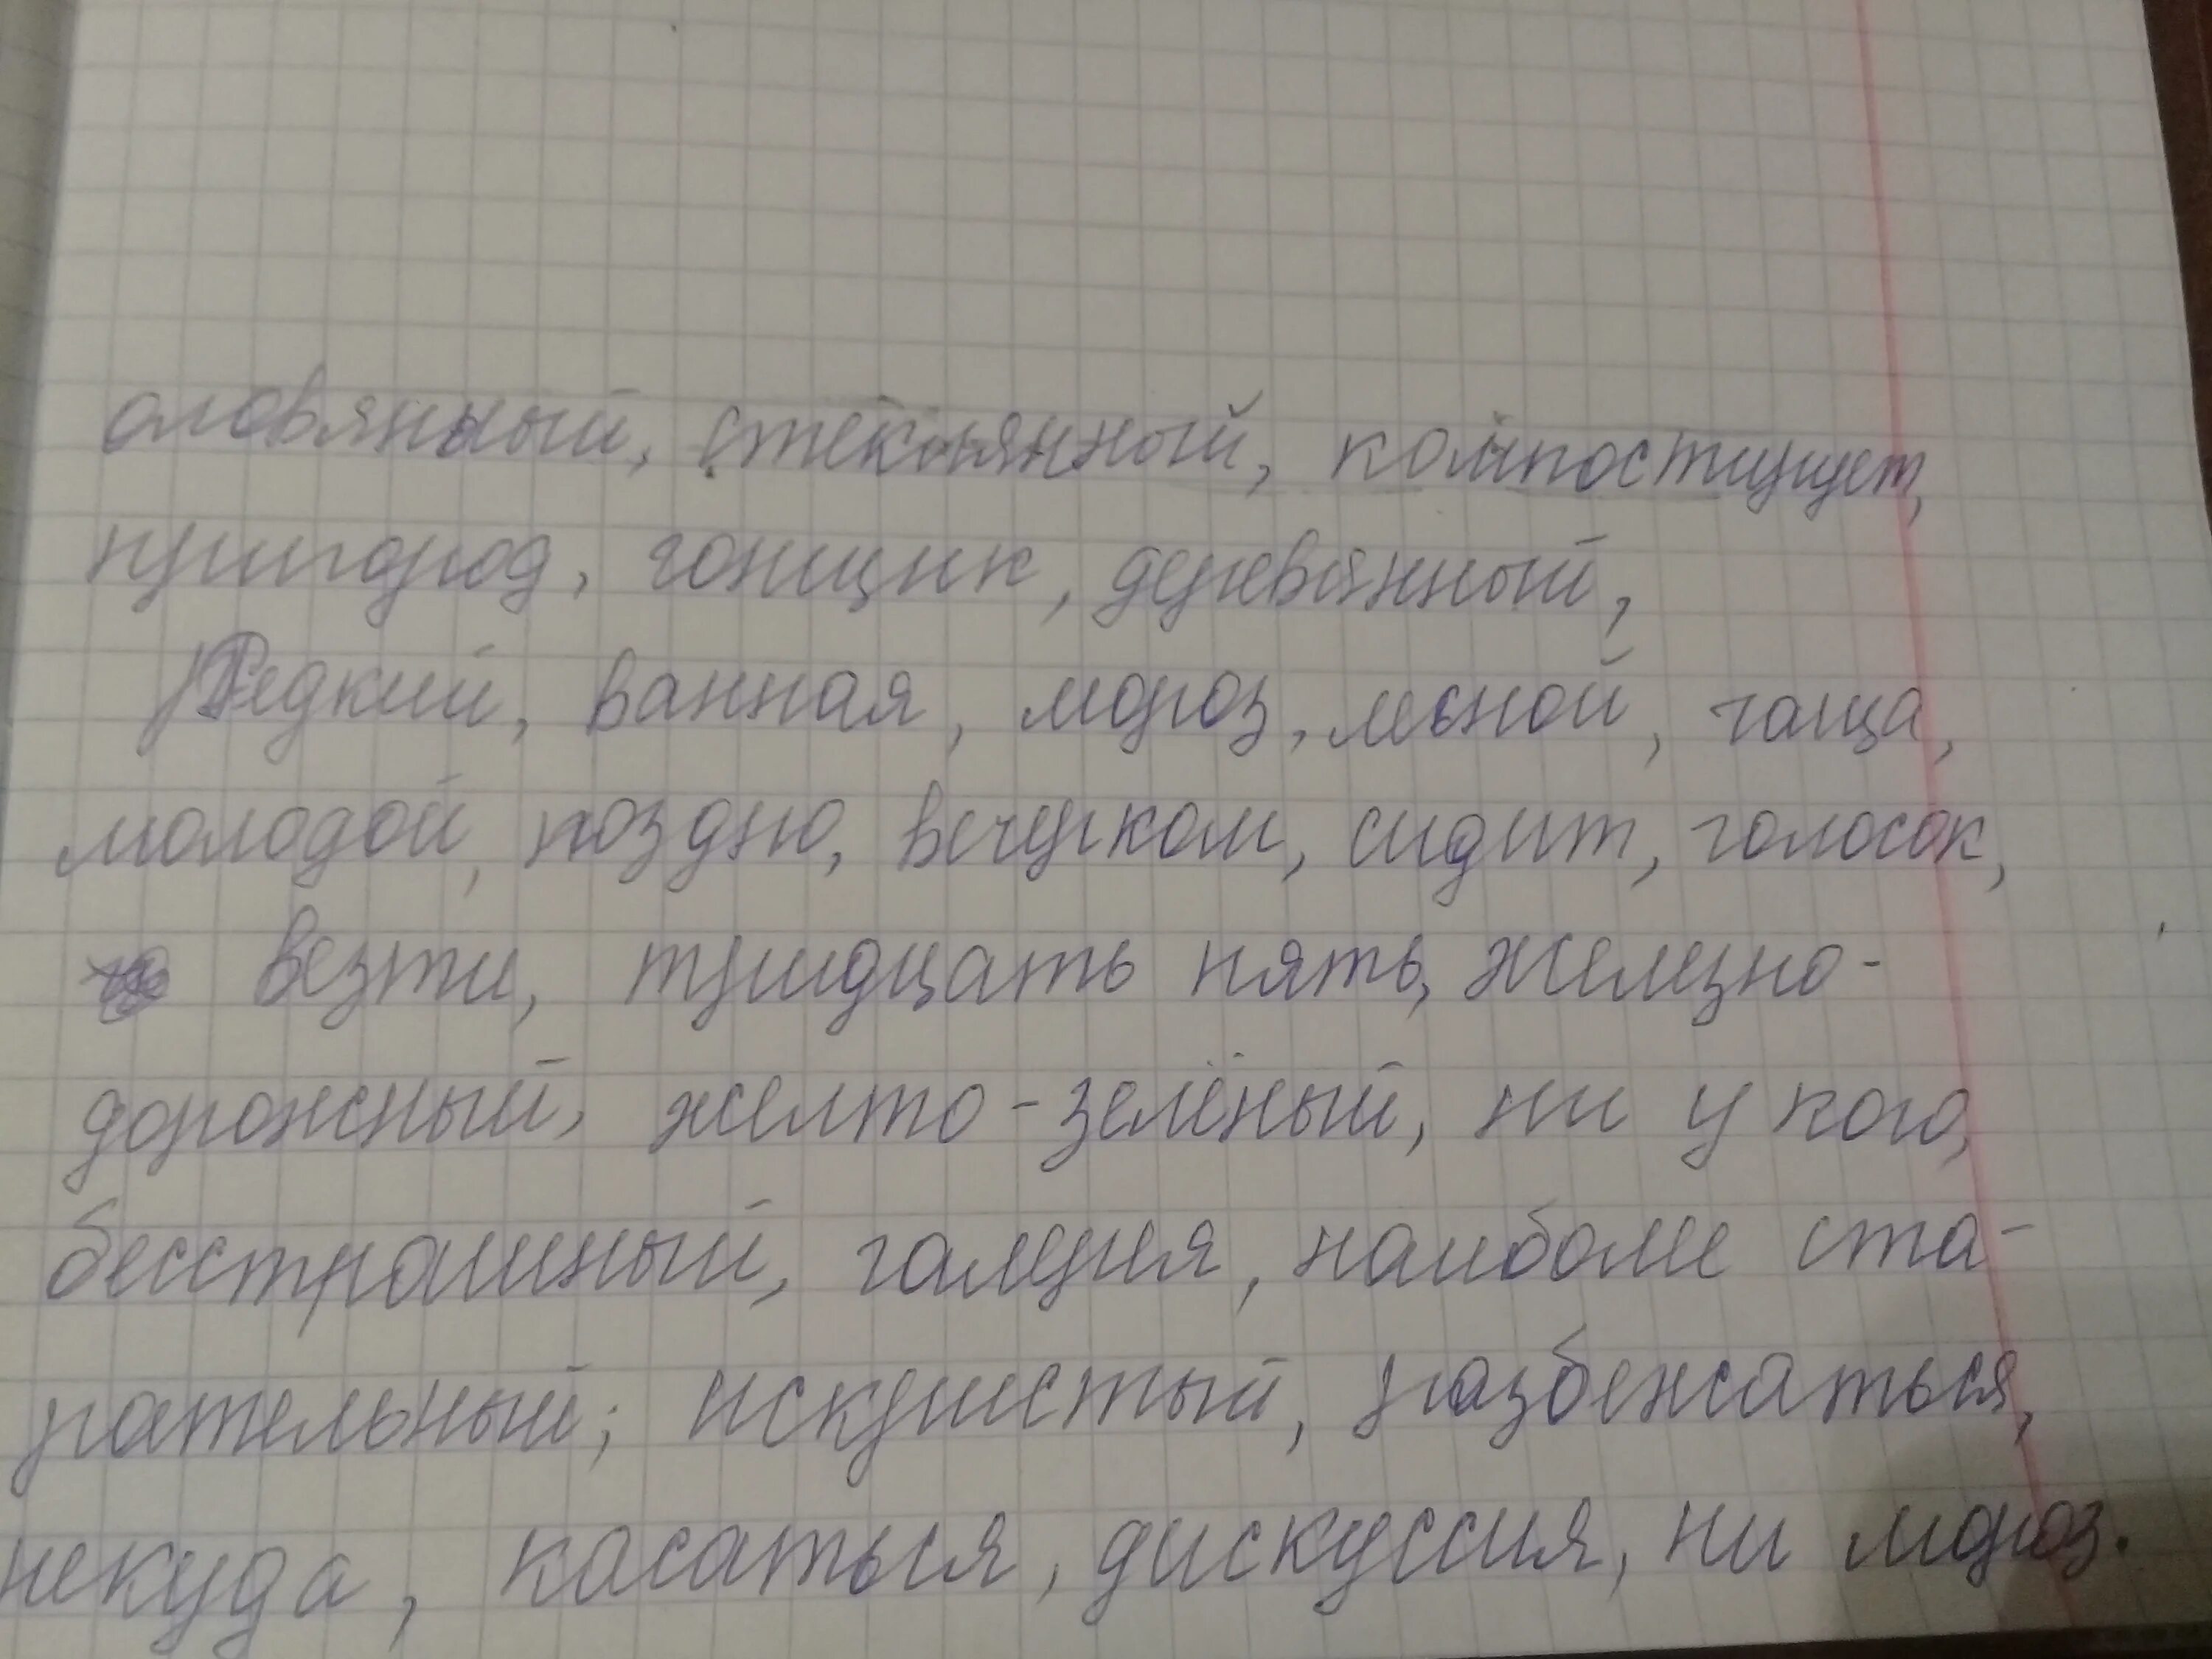 оловянный, стеклянный, компостиует,
пригород, гонщик, деревянный,
Редкий, ванная, мороз, лесной, чаща,
молодой, поздно, вечерком, сидит, голосок,
везти, тридцать пять, железно-
дорожный, желто-зелёный, ни у кого,
бесстрашный, галерея, наиболее ста-
рательный; искристый, разбежаться,
некуда, касаться, дискуссия, ни мороз.